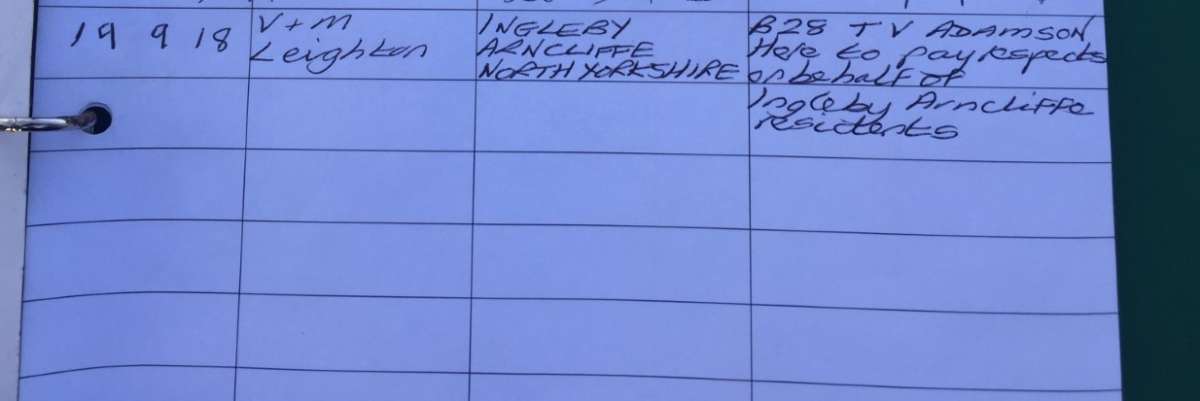 19 9 18
V + M
Leighton
INGLEBY
ARNCLIFFE
NORTH YORKSHIRE
B28 T V ADAMSON
Here to pay respects
on behalf of
Ingleby Arncliffe
residents